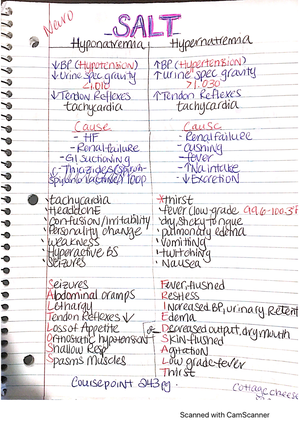 Neuro
SALT
Hyponatremia Hypernatremia
↓BP (Hypotension) ↑BP (Hypertension)
↓Urine spec gravity ↑Urine spec gravity
<1.010 >1.030
↓Tendon Reflexes ↑Tendon Reflexes
tachycardia tachycardia
Cause Cause
- HF - Renal failure
- Renal failure - Cushing
- GI suctioning - fever
- Thiazides ↑Na intake
loop ↓ Excretion
tachycardia *thirst
Headache fever (low grade 99.6-100.3
confusion/irritability dry, sticky tongue
Personality change pulmonary edema
weakness Vomitting
Hyperactive BS twitching
seizures Nausea
Seizures Fever-flushed
Abdominal cramps Restless
Lethargy Increased BP, urinary Retent
Tendon Reflexes ↓ Edema
Loss of Appetite Decreased output, dry mouth
Orthostatic hypotension Skin-flushed
Shallow Resp Agitation
Spasms Muscles Low grade-fever
Thirst
Coursepoint 243 pg
Cottage cheese
Scanned with CamScanner